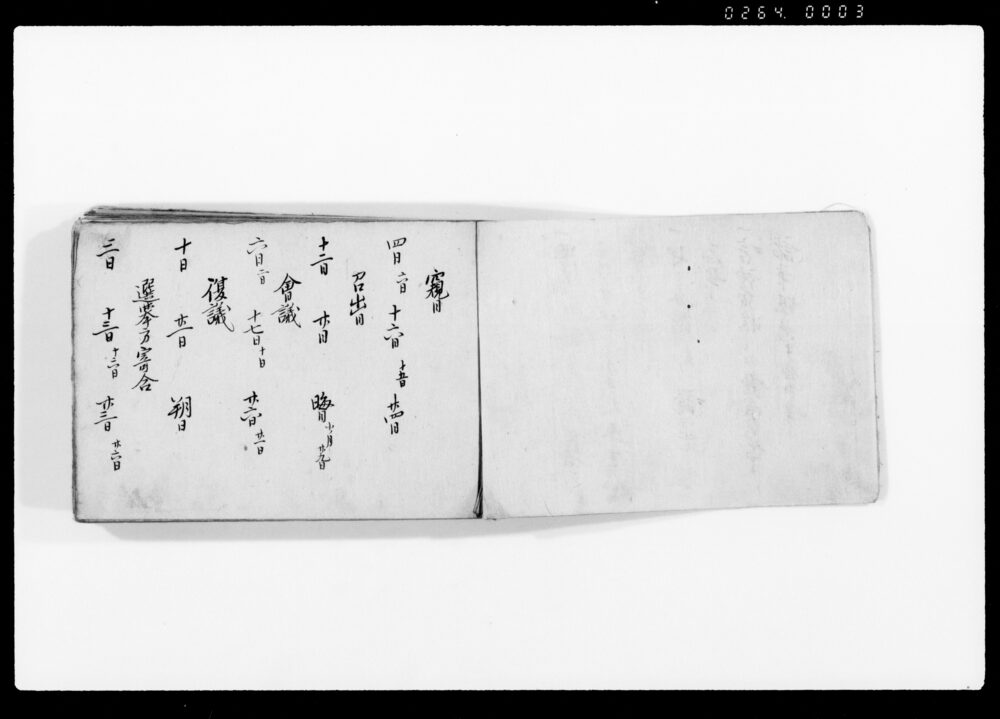 0264. 0003
窺日
四日 六日 十六日 十五日 廿四日
召出日
十三日 廿日 晦日 小ノ月廿九日
會議
六日 二日 十七日 十日 廿六日 廿二日
復議
十日 廿一日 朔日
選挙方寄合
三日 十三日 十六日 廿三日 廿六日